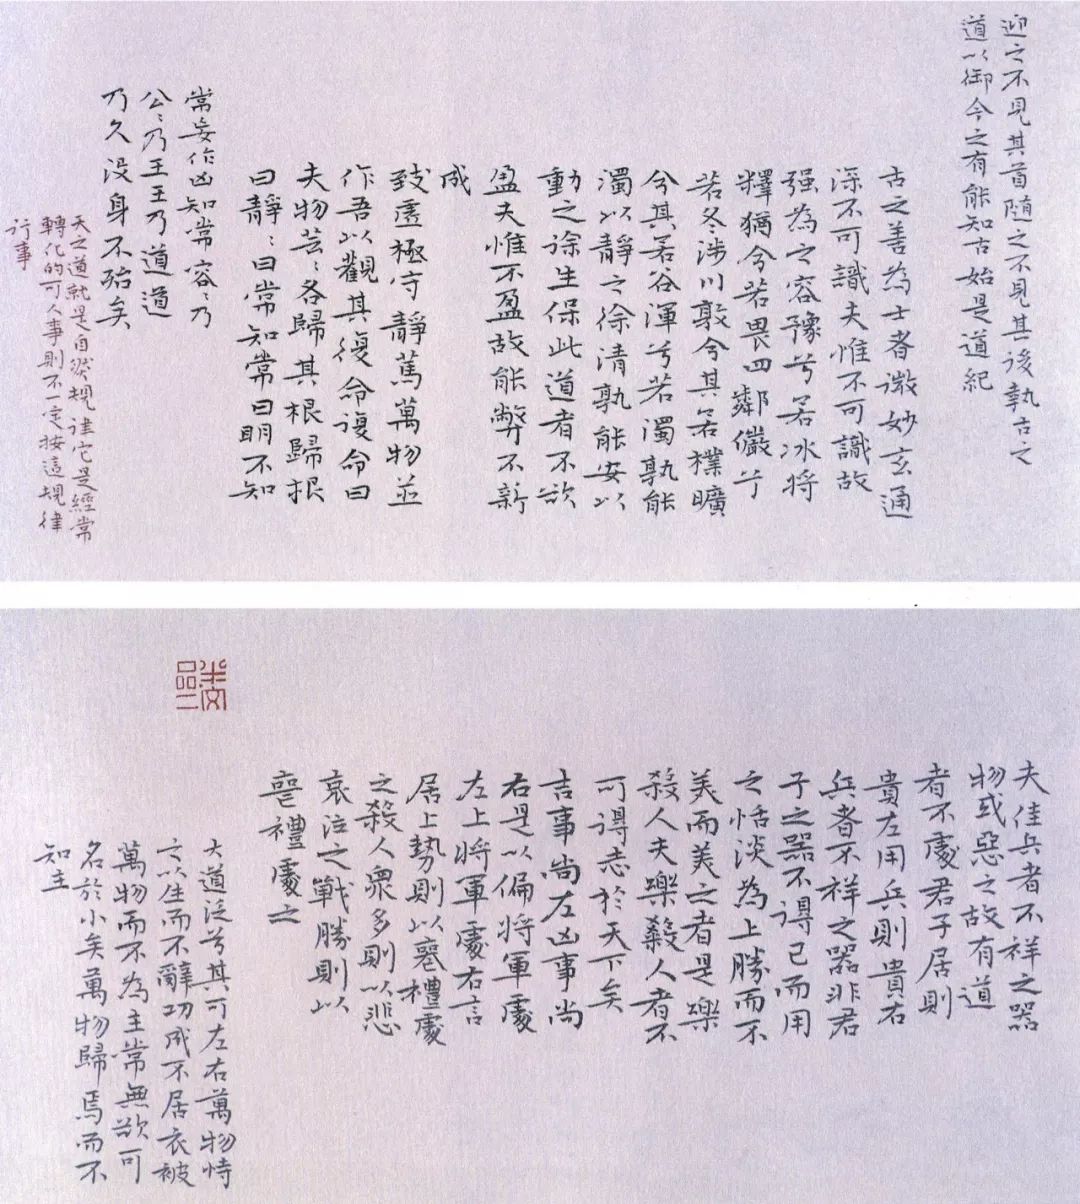 迎之不見其首隨之不見其後執古之
道以御今之有能知古始是道紀
古之善為士者微妙玄通
深不可識夫惟不可識故
强為之容豫兮若冰將
釋猶兮若畏四鄰儼兮
若冬涉川敦兮其若樸曠
兮其若谷渾兮若濁孰能
濁以靜之徐清孰能安以
動之徐生保此道者不欲
盈夫惟不盈故能弊不新
成
致虛極守靜篤萬物並
作吾以觀其復命復命曰
夫物芸〻各歸其根歸根
曰靜〻曰常知常曰明不知
常妄作凶知常容〻乃
公〻乃王王乃道道
乃久没身不殆矣
天之道就是自然規律它是經常
轉化的可人事則不一定按這規律
行事
夫佳兵者不祥之器
物或惡之故有道
者不處君子居則
貴左用兵則貴右
兵者不祥之器非君
子之器不得已而用
之恬淡為上勝而不
美而美之者是樂
殺人夫樂殺人者不
可得志於天下矣
吉事尚左凶事尚
右是以偏將軍處
左上將軍處右言
居上勢則以喪禮處
之殺人衆多則以悲
哀泣之戰勝則以
喪禮處之
大道泛兮其可左右萬物恃
之以生而不辭功成不居衣被
萬物而不為主常無欲可
名於小矣萬物歸焉而不
知主